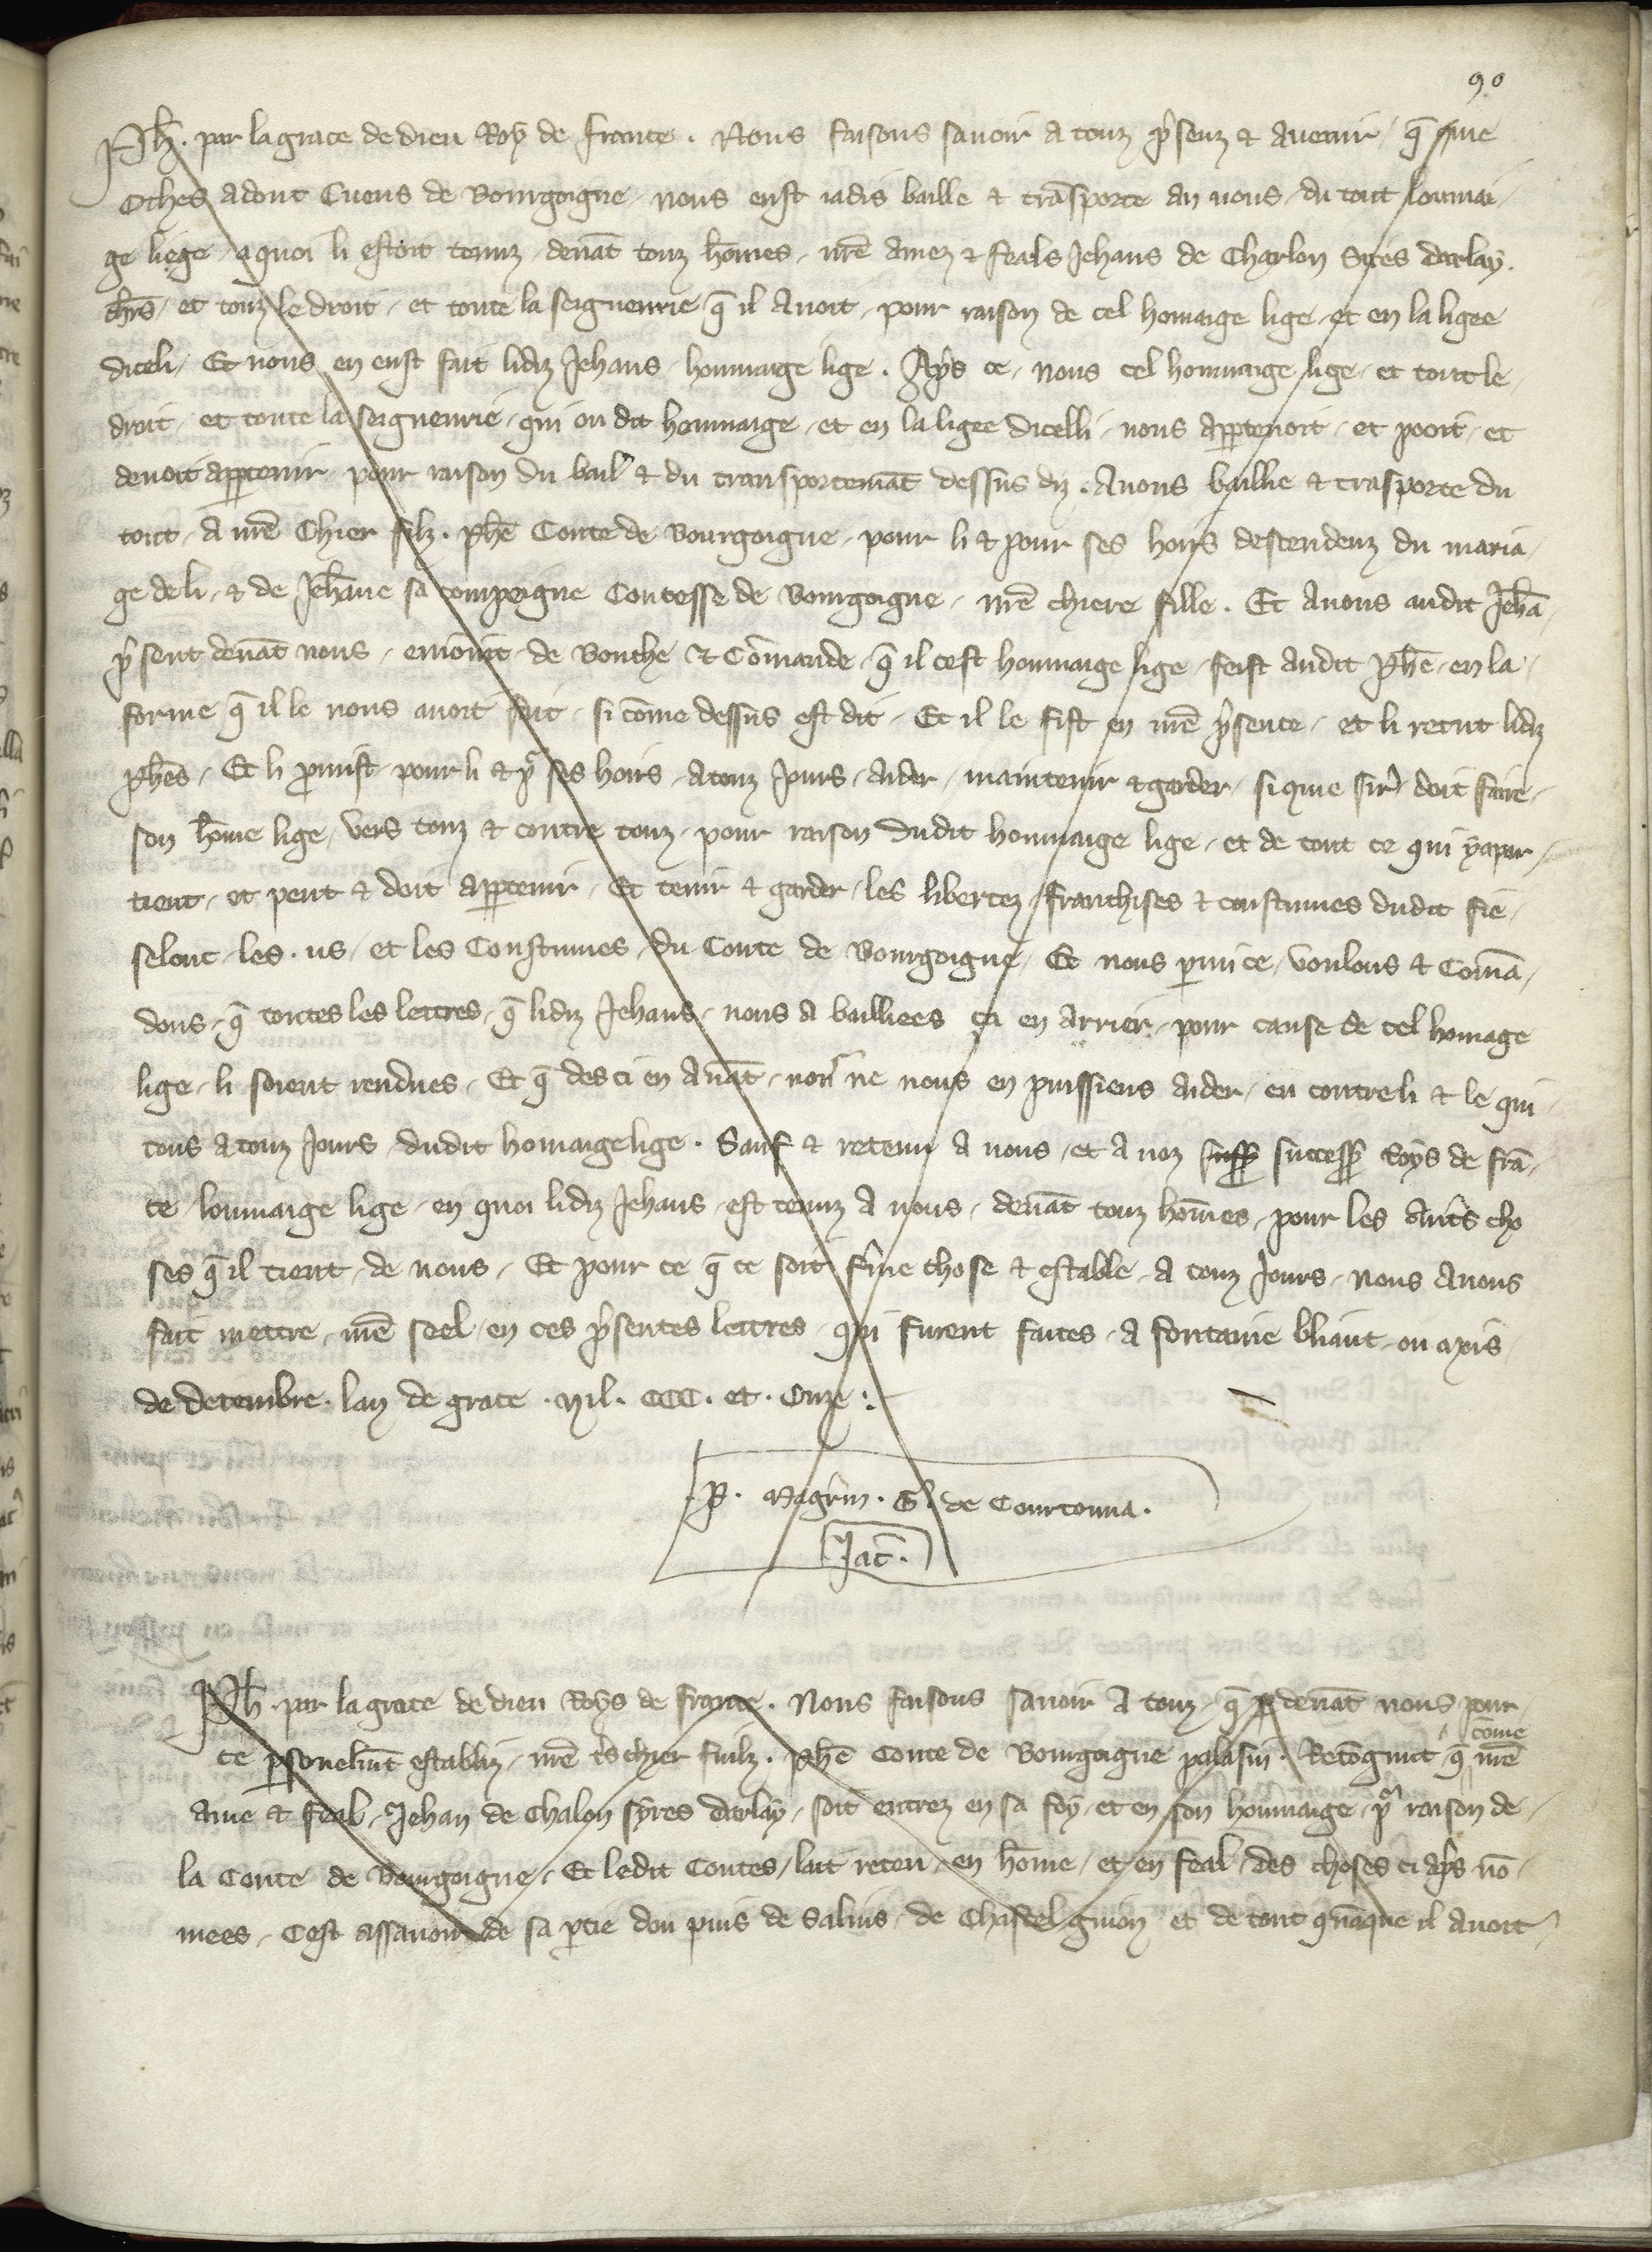 90
Ph̅. par la grace de dieu Roy de france. Nous faisons savoir a touz p̂senz & avenir, q̄ q̄me
Othes adont Cuens de Bourgoigne, nous eust iadis baille & trāsporte an nous, du tout lommai-
ge liege, a quoi li estoit tenuz, devāt touz hōmes, nr̄e amez & feals Jehans de Charlon Sires darlay.
et touz le droit, et toute la seigneurie q̄ il avoit, pour raison de cel homaige lige, et en la ligee
diceli, Et nous en eust fait lidiz Jehans, hommaige lige. Ap̂s ce, nous cel hommaige lige, et tout le
droit, et toute la seigneurie, qui ou dit hommaige, et en la ligee dicelli, nous appartenoit, et pooit, et
devoit appartenir, pour raison du bail & du transportemāt dessus diz. Avons baillie & trasporte du
tout, a nr̄e Chier filz. Ph̅e Conte de Bourgoigne, pour li & pour ses hoirs descendenz du maria-
ge de li, & de Jeh̅ane sa compeigne Contesse de Bourgoigne, nr̄e chiere fille. Et avons audit Jeh̅a
p̂sent devāt nous, enioint de Bouche & Cōmande, q̄ il cest hommaige lige, feist audit Ph̅e, en la
forme q̄ il le nous avoit fait, si cōme dessus est dit, Et il le fist en nr̄e p̂sence, et li recut lidiz
Ph̅es, Et li p̄mist pour li & p̂ ses hoirs, a touz Jours, aider, maintenir & garder, si q̄me sire doit faire,
son hōme lige, vers touz & contre touz, pour raison dudit hommaige lige, et de tout ce qui yapar-
tient, et peut & doit appartenir, Et tenir & garder, les libertez, franchises & coustumes dudit fie,
selonc les. us, et les Coustumes, du Conte de Bourgoigne, Et nous p̄mi ce, voulons & Comā-
dons, q̄ toutes les lettres, q̄ lidiz Jehans, nous a bailliees ca en arrier, pour cause de cel homage
lige, li soient rendues, Et q̄ des ci en avāt, no᷒ ne nous en puissiens aider, en contre li & le qui-
tons a touz Jours dudit homaige lige. Sauf & retenu a nous, et a noz succeß Roys de frā-
ce, lommaige lige, en quoi lidiz Jehans, est tenuz a nous, devāt touz hōmes, pour les aut̂s cho
ses q̄ il tient, de nous, Et pour ce q̄ ce soit f̂me chose & estable, a touz Jours, nous avons
fait mettre, nr̄e seel, en ces p̂sentes lettres, qui furent faites, a fontaine bliaut, ou mois,
de decembre, lan de grace. Mil. CCC. et. Onze.
P. Magrm. G. de Courtonna.
Jac̄.
Ph̅. par la grace de dieu Roys de france. Nous faisons savoir a touz, q̄ p devāt nous, pour
come
ce p̄sonelmēt establiz, nr̄e t̂s chier fuilz. Ph̅e Conte de Bourgoigne palasin. Recōgnut, q̄ nr̄e
ame & feal, Jehan de Chalon syres darlay, soit entrez en sa foy, et en son hommaige, p̂ raison de
la Conte de Bourgoigne, Et ledit Contes, lait receu, en hōme, et en feal, des choses ci ap̂s nō-
mees, Cest assavoir de sa p̄tie dou puis de Salins, de Chastelguion, et de tout q̄naque il avoit